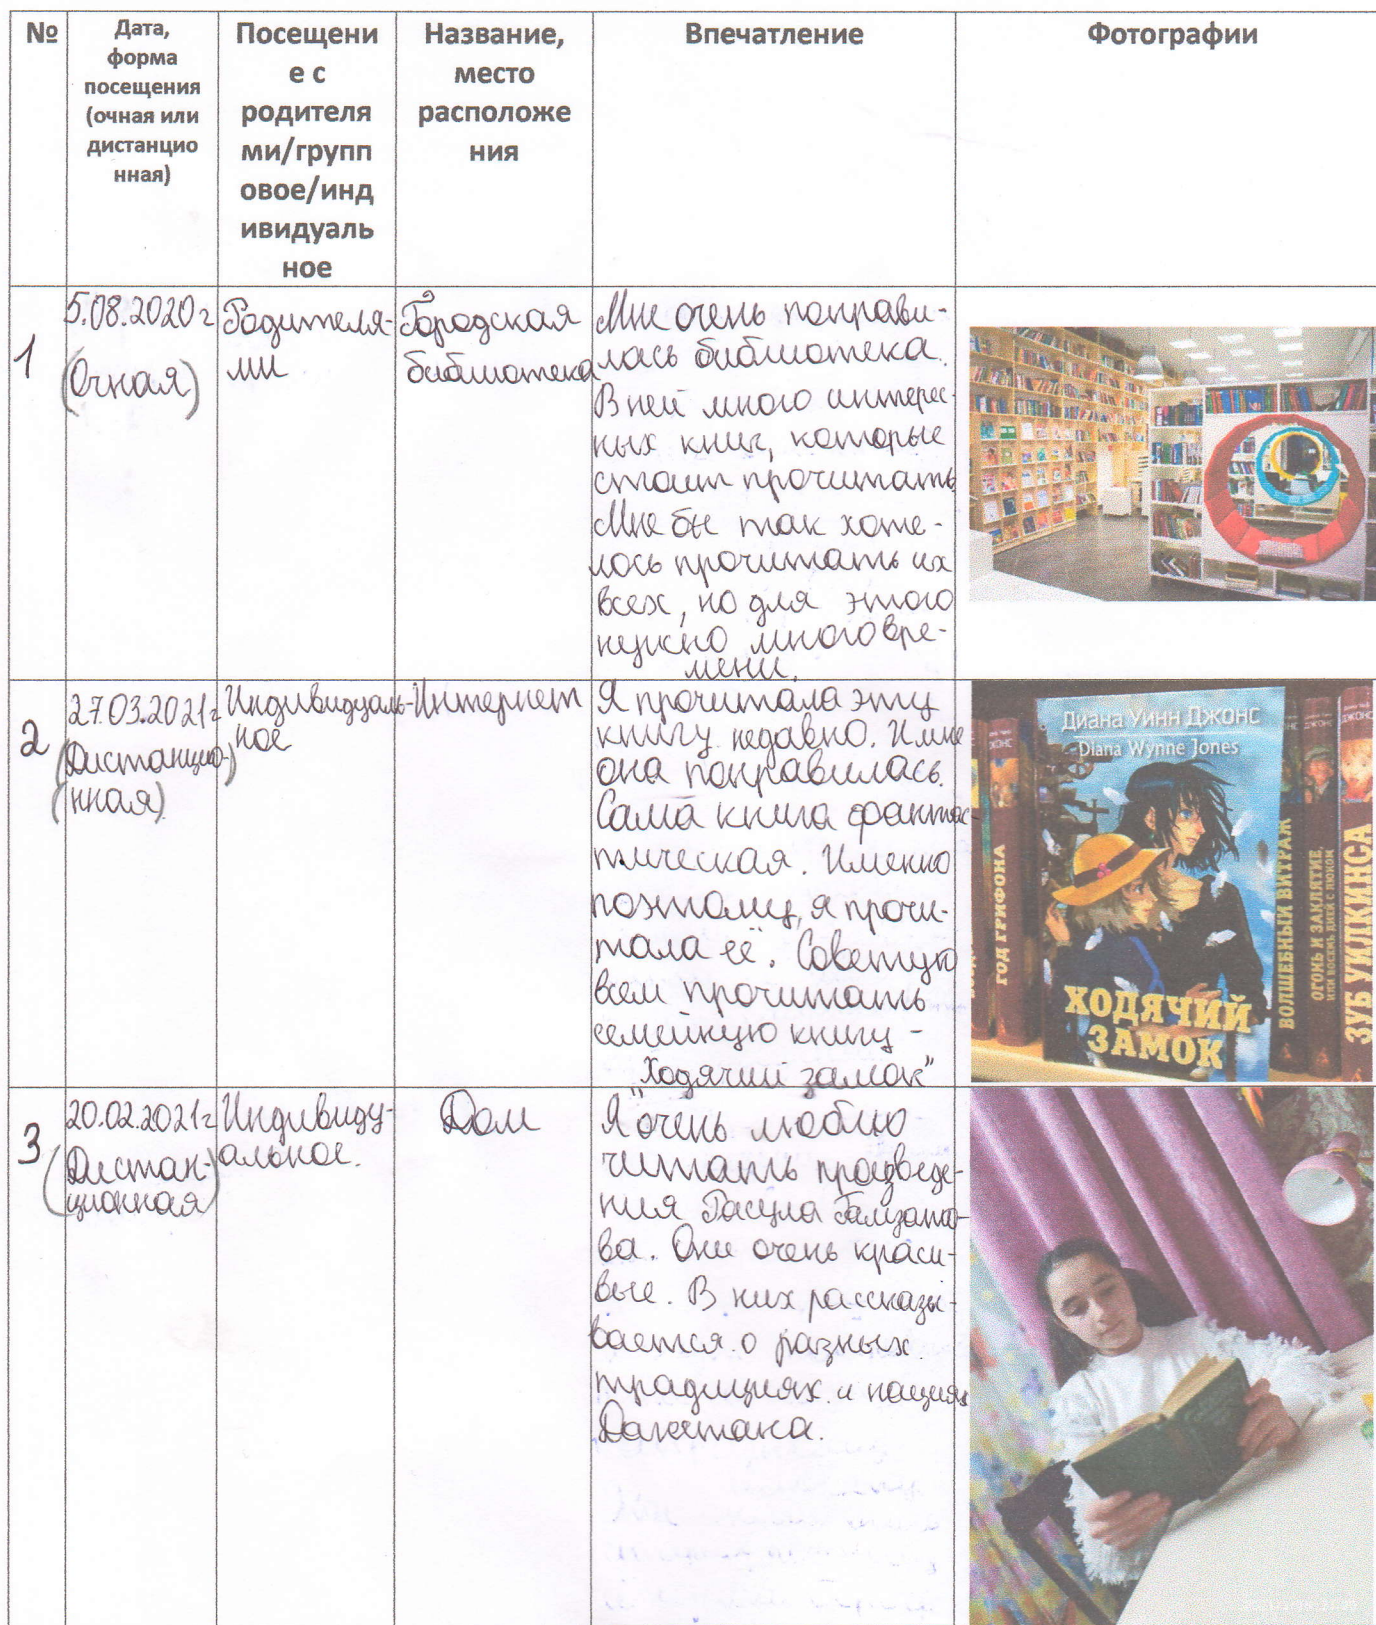 №
Дата,
форма
посещения
(очная или
дистанцио
нная)
Посещени
е с
родителя
ми/групп
овое/инд
ивидуаль
ное
Название,
место
расположе
ния
Впечатление
Фотографии
1
5.08.2020г
(Очная)
Родителя-
ми
Городская
библиотека
Мне очень понрави-
лась библиотека.
В ней много интерес-
ных книг, которые
стоит прочитать.
Мне бы так хоте-
лось прочитать их
всех, но для этого
нужно много вре-
мени.
2
27.03.2021г
(Дистанцио-)
(нная)
Индивидуаль-
ное
Интернет
Я прочитала эту
книгу недавно. И мне
она понравилась.
Сама книга фантас-
тическая. Именно
поэтому, я прочи-
тала её. Советую
всем прочитать
семейную книгу -
"Ходячий замок"
Диана Уинн Джонс
Diana Wynne Jones
ХОДЯЧИЙ
ЗАМОК
ГОД ГРИФОНА
ВОЛШЕБНЫЙ ВИТРАЖ
ОГОНЬ И ЗАКЛЯТИЕ,
ЗУБ УИЛКИНСА
3
20.02.2021г
(Дистан-)
(ционная)
Индивиду-
альное.
Дом
Я очень люблю
читать произведе-
ния Расула Гамзато-
ва. Они очень краси-
вые. В них рассказы-
вается о разных
традициях и нациях
Дагестана.